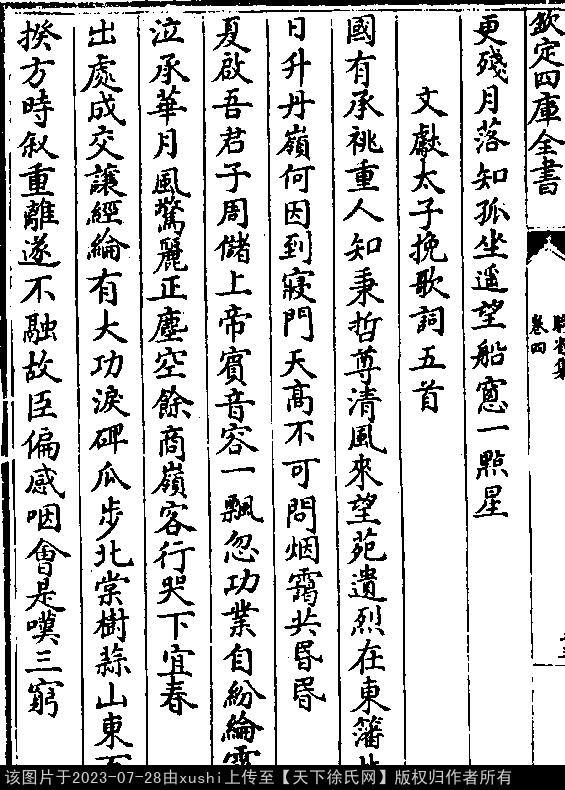 欽定四庫全書
卷四
更殘月落知孤坐遥望船窻一㸃星
文獻太子挽歌詞五首
國有承祧重人知秉哲尊清風來望苑遺烈在東藩
日升丹嶺何因到寢門天髙不可問烟靄共昬昬
夏啟吾君子周儲上帝賓音容一飄忽功業自紛綸
泣承華月風驚麗正塵空餘商嶺客行哭下宜春
出處成交讓經綸有大功淚碑瓜步北棠樹蒜山東
揆方時叙重離遂不融故臣偏感咽㑹是嘆三窮
该图片于2023-07-28由xushi上传至【天下徐氏网】版权归作者所有